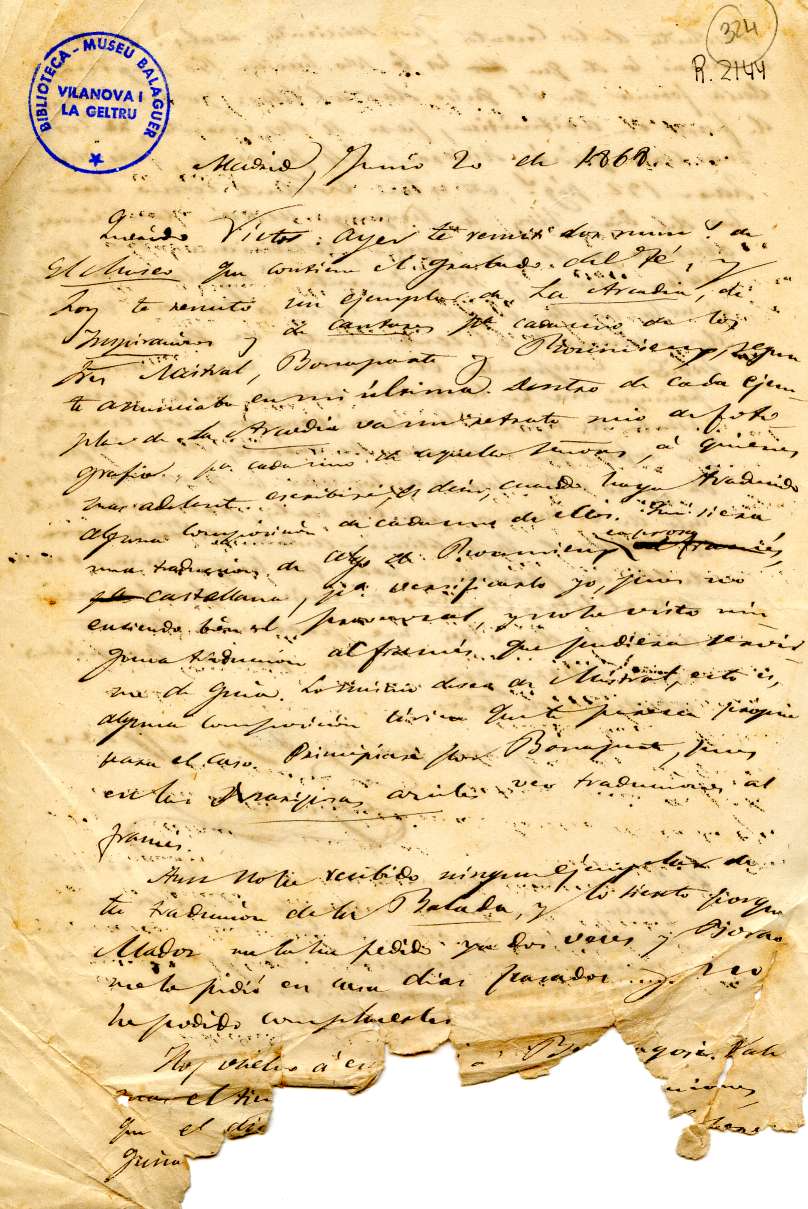 324
R. 2144
BIBLIOTECA - MUSEU BALAGUER
VILANOVA I
LA GELTRU
Madrid, Junio 20 de 1868.
Querido Victor: ayer te remití dos num.s de
El Museo que contiene el grabado del Fé, y
hoy te remito un ejemplar de La Arcadia, de
Inspiraciones y de cantares pa cada uno de los
tres Mistral, Bonaparte y Roumieux, segun
te anunciaba en mi última. Dentro de cada ejem-
plar de La Arcadia va un retrato mio de foto
grafia, pa cada uno de aquellos señores, á quienes
mas adelante escribiré, es decir, cuando haya traducido
alguna composicion de cada uno de ellos. Quisiera
una traduccion de algo de Roumieux en prosa al francés,
castellana, pa versificarlo yo, pues no
entiendo bien el provenzal, y no he visto nin-
guna traduccion al francés que pudiera servir
me de guia. Lo mismo deseo de Mistral, esto es,
alguna composicion lírica que te parezca propia
para el caso. Principiaré por Bonaparte, pues
en las veo traducciones al
francés.
Aun no he recibido ningun ejemplar de
tu traduccion de la Balada, y lo siento porque
Madoz me la ha pedido ya dos veces y
me la pidió en casa dias pasados y no
he podido complacerles
Hoy vuelvo á
mas el
que el